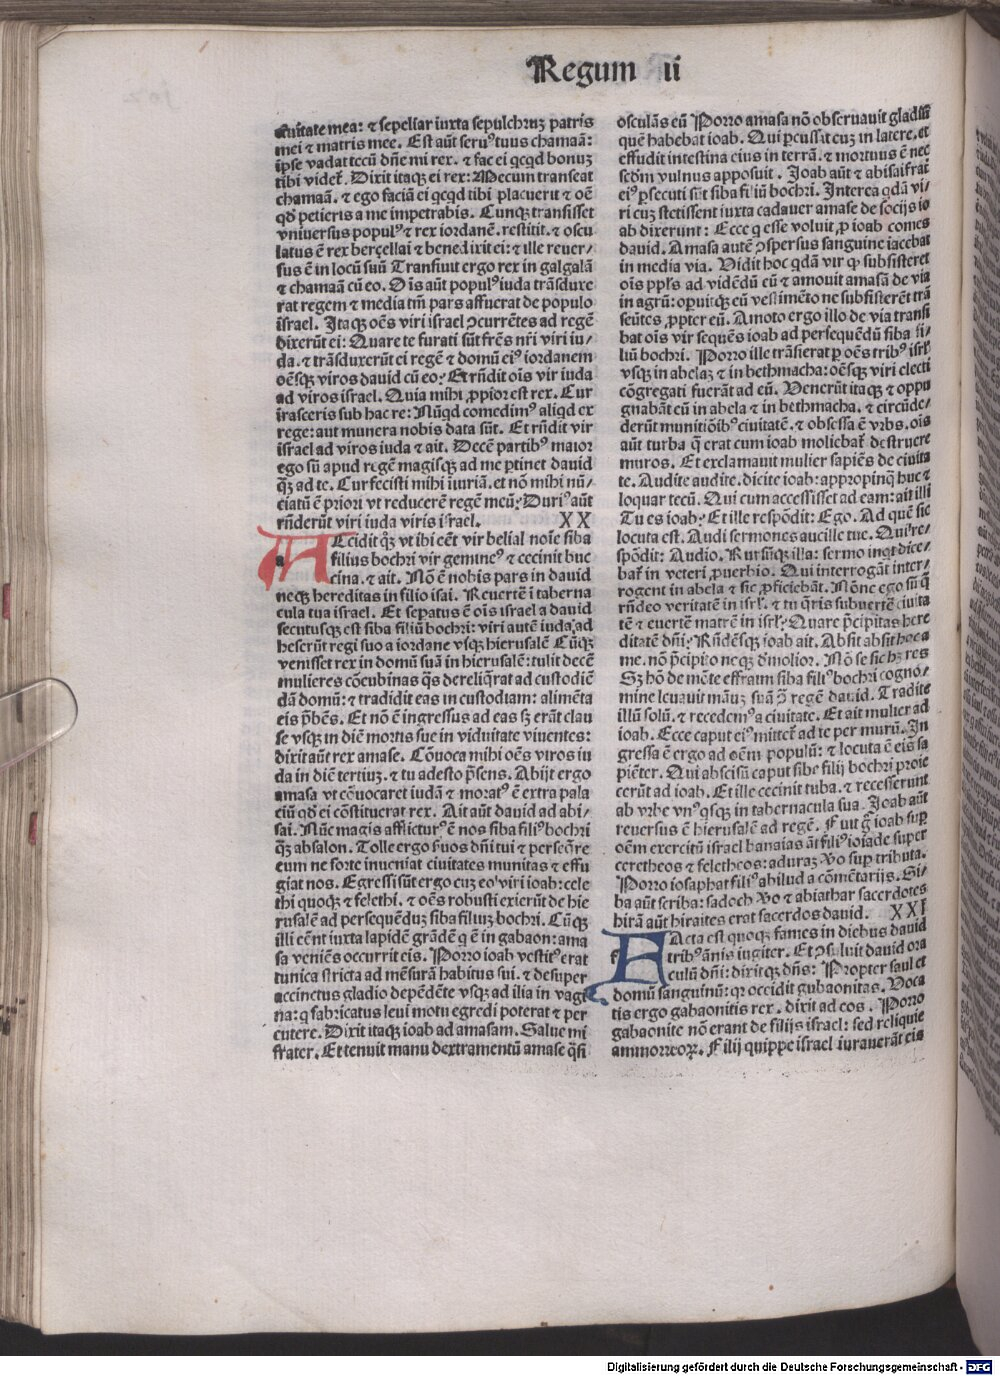 Regum ii
ciuitate mea: ⁊ sepeliar iuxta sepulchruȝ patris
mei ⁊ matris mee. Est aūt seruꝰ tuus chamaā:
ipse vadat tecū dn̄e mi rex. ⁊ fac ei qcqd bonuȝ
tibi videt᷑. Dixit itaqȝ ei rex: Mecum transeat
chamaā. ⁊ ego faciā ei qcqd tibi placuerit ⁊ oē
qd̄ petieris a me impetrabis. Cunqȝ transisset
vniuersus populꝰ ⁊ rex iordanē. restitit. ⁊ oscu
latus ē rex berçellai ⁊ benedixit ei: ⁊ ille reuer⸗
sus ē in locū suū Transiuit ergo rex in galgalā
⁊ chamaā cū eo. Oīs aūt populꝰ iuda trāsduxe
rat regem ⁊ media tm̄ pars affuerat de populo
israel. Itaqȝ oēs viri israel ↄcurrētes ad regē
dixerūt ei: Quare te furati sūt frēs nr̄i viri iu⸗
da. ⁊ trāsduxerūt ei regē ⁊ domū eiꝰ iordanem
oēsqȝ viros dauid cū eo: Et rn̄dit oīs vir iuda
ad viros israel. Quia mihi ꝓpior est rex. Cur
irasceris sub hac re: Nūqd comedimꝰ aliqd ex
rege: aut munera nobis data sūt. Et rn̄dit vir
israel ad viros iuda ⁊ ait. Decē partibꝰ maior
ego sū apud regē magisqȝ ad me ptinet dauid
q̄ȝ ad te. Cur fecisti mihi iuriā. et nō mihi nū⸗
ciatū ē priori vt reducerē regē meū: Duriꝰ aūt
rn̄derūt viri iuda viris israel. XX
ACcidit qȝ vt ibi eēt vir belial noīe siba
filius bochri vir gemineꝰ ⁊ cecinit buc
cina. ⁊ ait. Nō ē nobis pars in dauid
neqȝ hereditas in filio isai. Reuertē i taberna
cula tua israel. Et sepatus ē oīs israel a dauid
secutusqȝ est siba filiū bochri: viri autē iuda ad
heserūt regi suo a iordane vsqȝ hierusalē Cūqȝ
venisset rex in domū suā in hierusalē: tulit decē
mulieres cōcubinas q̄s dereliqrat ad custodiē
dā domū: ⁊ tradidit eas in custodiam: alimēta
eis p̄bēs. Et nō ē ingressus ad eas sȝ erāt clau
se vsqȝ in diē mortis sue in viduitate viuentes:
dixit aūt rex amase. Cōuoca mihi oēs viros iu
da in diē tertiuȝ. ⁊ tu adesto p̄sens. Abijt ergo
amasa vt cōuocaret iudā ⁊ moratꝰ ē extra pala
ciū qd̄ ei cōstituerat rex. Ait aūt dauid ad abi⸗
sai. Nūc magis afflicturꝰ ē nos siba filiꝰ bochri
q̄ȝ absalon. Tolle ergo suos dn̄i tui ⁊ perseq̄re
eum ne forte inueniat ciuitates munitas ⁊ effu
giat nos. Egressi sūt ergo cuȝ eo viri ioab: cele
thi quoqȝ ⁊ felethi. ⁊ oēs robusti exierūt de hie
rusalē ad persequēduȝ siba filiuȝ bochri. Cūqȝ
illi eēnt iuxta lapidē grādē q ē in gabaon: ama
sa veniēs occurrit eis. Porro ioab vestitꝰ erat
tunica stricta ad mēsurā habitus sui. ⁊ desuper
accinctus gladio depēdēte vsqȝ ad ilia in vagi
na: q fabricatus leui motu egredi poterat ⁊ per
cutere. Dixit itaqȝ ioab ad amasam. Salue mi
frater. Et tenuit manu dextra mentū amase q̄si
osculās eū Porro amasa nō obseruauit gladiū
quē habebat ioab. Qui pcussit cuȝ in latere. et
effudit intestina eius in terrā. ⁊ mortuus ē nec
scd̄m vulnus apposuit. Ioab aūt ⁊ abisai frat̄
eiꝰ psecuti sūt siba filiū bochri. Interea qdā vi⸗
ri cuȝ stetissent iuxta cadauer amase de socijs io
ab dixerunt: Ecce q esse voluit ꝓ ioab comes
dauid. Amasa autē ↄspersus sanguine iacebat
in media via. Vidit hoc qdā vir ꝙ subsisteret
oīs ppl̄s ad vidēdū eū ⁊ amouit amasā de via
in agrū: opuitqȝ eū vestimēto ne subsisterēt trā
seūtes ꝓpter eū. Amoto ergo illo de via transi
bat oīs vir sequēs ioab ad persequēdū siba fi⸗
liū bochri. Porro ille trāsierat ꝑ oēs tribꝰ isrl̄
vsqȝ in abelaȝ ⁊ in bethmacha: oēsqȝ viri electi
cōgregati fuerāt ad eū. Venerūt itaqȝ ⁊ oppu
gnabāt eū in abela ⁊ in bethmacha. ⁊ circūde⸗
derūt munitiōibꝰ ciuitatē. ⁊ obsessa ē vrbs. oīs
aūt turba q̄ erat cum ioab moliebat᷑ destruere
muros. Et exclamauit mulier sapiēs de ciuita
te. Audite audite. dicite ioab: appropinq̄ huc ⁊
loquar tecū. Qui cum accessisset ad eam: ait illi
Tu es ioab: Et ille respōdit: Ego. Ad quē sic
locuta est. Audi sermones ancille tue. Qui re⸗
spōdit: Audio. Rursūqȝ illa: sermo inqt dice⸗
bat᷑ in veteri ꝓuerbio. Qui interrogāt inter⸗
rogent in abela ⁊ sic ꝓficiebāt. Nōne ego sū q̄
rn̄deo veritatē in isrl̄. ⁊ tu q̄ris subuertē ciuita
tē ⁊ euertē matrē in isrl̄: Quare p̄cipitas here
ditatē dn̄i: Rn̄dēsqȝ ioab ait. Absit absit hoc a
me. nō p̄cipito neqȝ demolior. Nō se sic hȝ res
Sȝ hō de mōte effraim siba filiꝰ bochri cogno⸗
mine leuauit manū suā ↄ̄ regē dauid. Tradite
illū solū. ⁊ recedemꝰ a ciuitate. Et ait mulier ad
ioab. Ecce caput eiꝰ mittet᷑ ad te per murū. In
gressa ē ergo ad oēm populū: ⁊ locuta ē eis sa
piēter. Qui abscisū caput sibe filij bochri proie
cerūt ad ioab. Et ille cecinit tuba. ⁊ recesserunt
ab vrbe vnꝰqsqȝ in tabernacula sua. Ioab aūt
reuersus ē hierusalē ad regē. Fuit g̃ ioab sup̄
oēm exercitū israel banaias āt filiꝰ ioiade super
ceretheos ⁊ feletheos: aduraȝ ꝟo sup̄ tributa.
Porro iosaphat filiꝰ ahilud a cōmētarijs. Si⸗
ba aūt scriba: sadoch ꝟo ⁊ abiathar sacerdotes
hirā aūt hiraites erat sacerdos dauid. XXI
FActa est quoqȝ fames in diebus dauid
tribꝰ ānis iugiter. Et ↄsuluit dauid ora
culū dn̄i: dixitqȝ dn̄s: Propter saul et
domū sanguinū: qꝛ occidit gabaonitas. Voca
tis ergo gabaonitis rex. dixit ad eos. Porro
gabaonite nō erant de filijs israel: sed reliquie
amorreoꝝ. Filij quippe israel iurauerāt eis
Digitalisierung gefördert durch die Deutsche Forschungsgemeinschaft - DFG